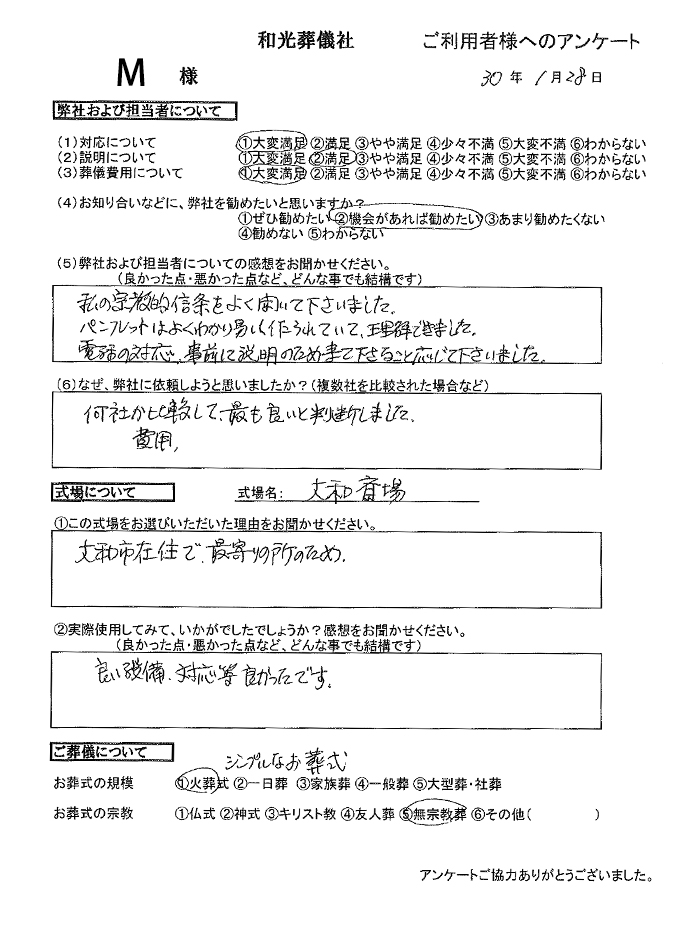 和光葬儀社 ご利用者様へのアンケート
M 様 30年 1月28日
弊社および担当者について
(1)対応について ①大変満足 ②満足 ③やや満足 ④少々不満 ⑤大変不満 ⑥わからない
(2)説明について ①大変満足 ②満足 ③やや満足 ④少々不満 ⑤大変不満 ⑥わからない
(3)葬儀費用について ①大変満足 ②満足 ③やや満足 ④少々不満 ⑤大変不満 ⑥わからない
(4)お知り合いなどに、弊社を勧めたいと思いますか?
①ぜひ勧めたい ②機会があれば勧めたい ③あまり勧めたくない
④勧めない ⑤わからない
(5)弊社および担当者についての感想をお聞かせください。
(良かった点・悪かった点など、どんな事でも結構です)
私の宗教的信条をよく聞いて下さいました。
パンフレットはよくわかり易く作られていて、理解できました。
電話の対応、事前に説明のため来て下さること応じて下さいました。
(6)なぜ、弊社に依頼しようと思いましたか?(複数社を比較された場合など)
何社か比較して、最も良いと判断しました。
費用、
式場について 式場名: 大和斎場
①この式場をお選びいただいた理由をお聞かせください。
大和市在住で、最寄りの所のため。
②実際使用してみて、いかがでしたでしょうか?感想をお聞かせください。
(良かった点・悪かった点など、どんな事でも結構です)
良い設備、対応等良かったです。
ご葬儀について シンプルなお葬式
お葬式の規模 ①火葬式 ②一日葬 ③家族葬 ④一般葬 ⑤大型葬・社葬
お葬式の宗教 ①仏式 ②神式 ③キリスト教 ④友人葬 ⑤無宗教葬 ⑥その他( )
アンケートご協力ありがとうございました。